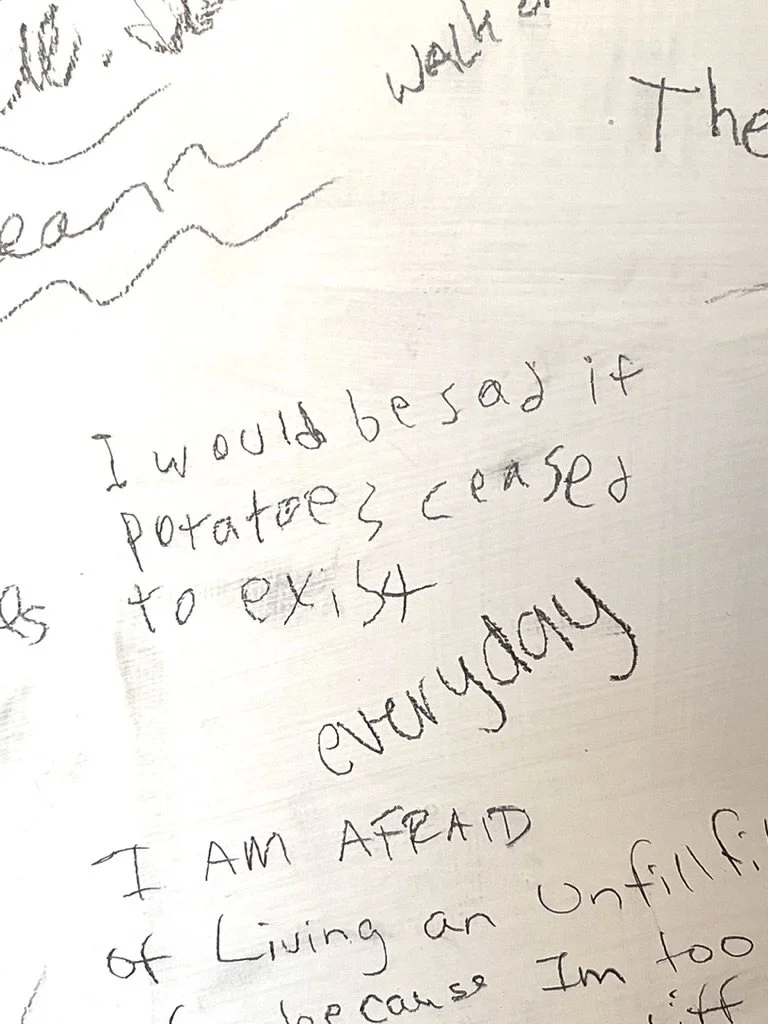 walk
The
I would be sad if
potatoes ceased
to exist
everyday
I AM AFRAID
of Living an Unfillfi
because Im too